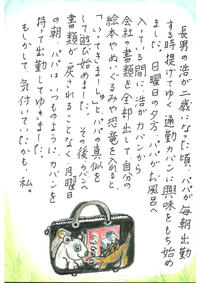 長男の浩が二歳になった頃、パパが毎朝出勤
する時提げてゆく通勤カバンに興味をもち始め
ました。日曜日の夕方、パパがお風呂へ
入っている間に、浩がカバンから
会社の書類を全部出して自分の
絵本やぬいぐるみや恐竜を入れ、
「いってきまーす」と、パパの真似を
して遊び始めました。その後、カバンへ
書類を戻されることなく、月曜日
の朝、パパはいつものようにカバンを
持って出勤してゆきました。
もしかして、気付いていたかも、私。